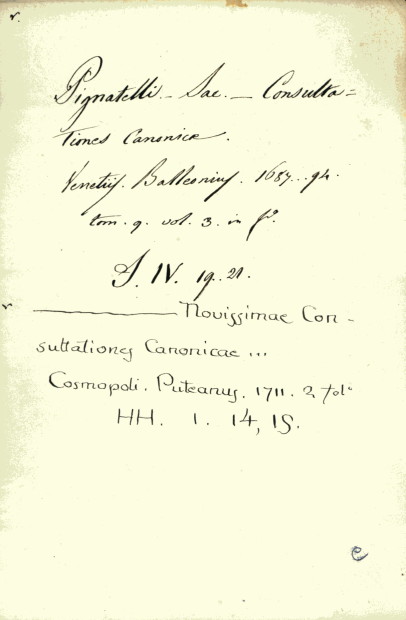 r.
Pignatelli - Jac. - Consulta=
tiones Canonicæ.
Venetiis. Balleonius. 1687..94.
tom. 9. vol. 3. in fº.
J. IV. 19. 21.
r
——— Novissimae Con-
sultationes Canonicae ...
Cosmopoli. Puteanus. 1711. 2 folº
HH. 1. 14, 15.
e